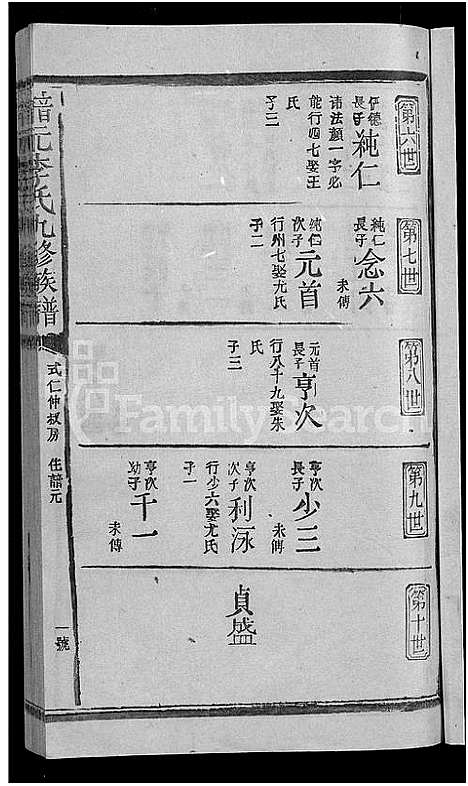 第六世
伊德
長子
純仁
諱法顏一字必
能行四七娶王
氏
子二
第七世
純仁
長子
念六
未傳
純仁
次子
元首
行州七娶尤氏
子二
第八世
元首
長子
亨次
行八千九娶朱
氏
子三
第九世
亨次
長子
少三
未傳
亨次
次子
利泳
行少六娶尤氏
子一
亨次
幼子
千一
未傳
第十世
貞盛
元李氏九修族譜
式仁仲叔房 住𩐳元
一號
FamilySearch